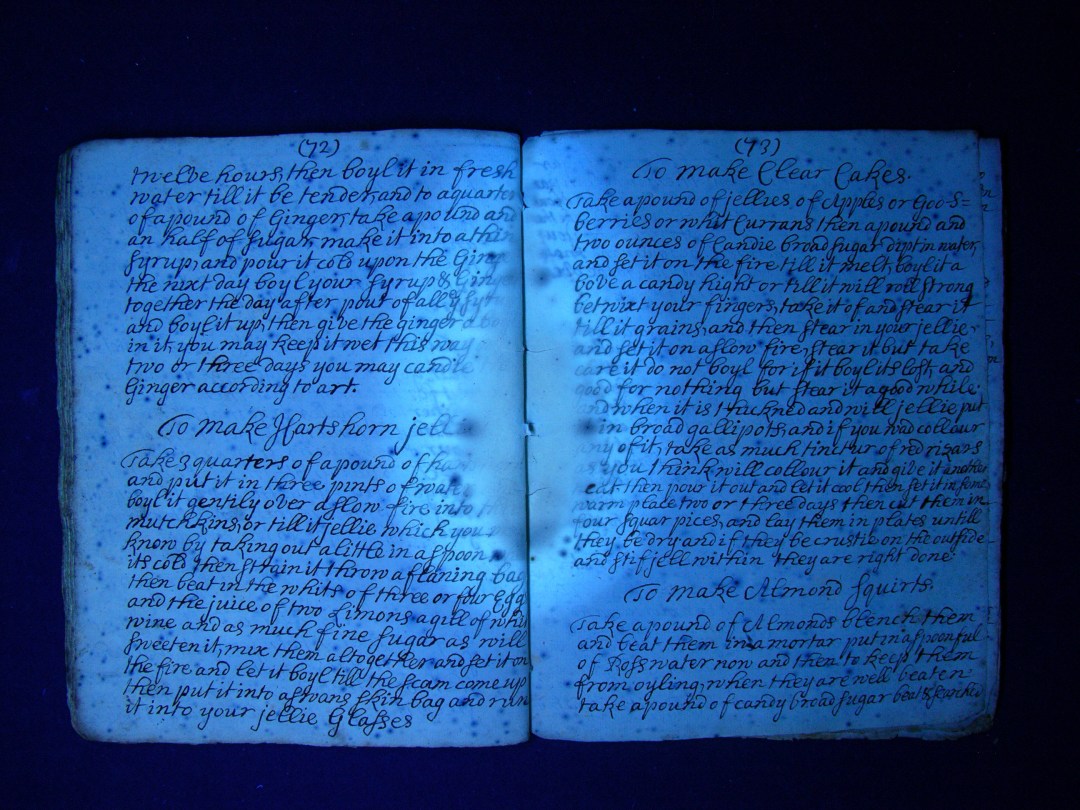 (72)
twelve hours, then boyl it in fresh
water till it be tender, and to a quarter
of a pound of Ginger, take a pound and
an half of sugar, make it into a thin
syrup, and pour it cold upon the Ginger
the nixt day boyl your syrup & Ginger
together the day after pour of all
and boyl it up, then give the ginger a
in it, you may keep it wet this way
two or three days you may candie
Ginger according to art.
To make Hartshorn jellie
Take 3 quarters of a pound of
and put it in three pints of water
boyl it gentily over a slow fire into
mutchkins, or till it jellie which you
know by taking out a little in a spoon,
its cold then strain it throw a flaning bag
then beat in the whits of three or four Eggs
and the juice of two Limons a gill of whit
wine and as much fine sugar as will
sweeten it, mix them altogether and set it on
the fire and let it boyl till the scam come up
then put it into a swans skin bag and run
it into your jellie Glasses
(73)
To make Clear Cakes.
Take a pound of jellies of Apples or Goo-s=
berries or whit Currans then a pound and
two ounces of Candie broad sugar dipt in water,
and set it on the fire till it melt, boyl it a
bove a candy hight or till it will roil strong
betwixt your fingers, take it of and stear it
till it grains, and then stear in your jellie
and set it on a slow fire, stear it but take
care it do not boyl for if it boyl its lost, and
good for nothing but stear it a good while
and when it is thickned and will jellie put
in broad gallipots, and if you wod collour
any of it, take as much tincture of red
as you think will collour it and give it another
heat then pour it out and let it cool then set it in some
warm place two or three days then cut them in
four squar pices, and lay them in plates untill
they be dry and if they be crustie on the outside
and stif jell within they are right done
To make Almond squirts.
Take a pound of Almonds blench them
and beat them in a mortar put in a spoonful
of Ross water now and then to keep them
from oyling, when they are well beaten
take a pound of candy broad sugar beat &